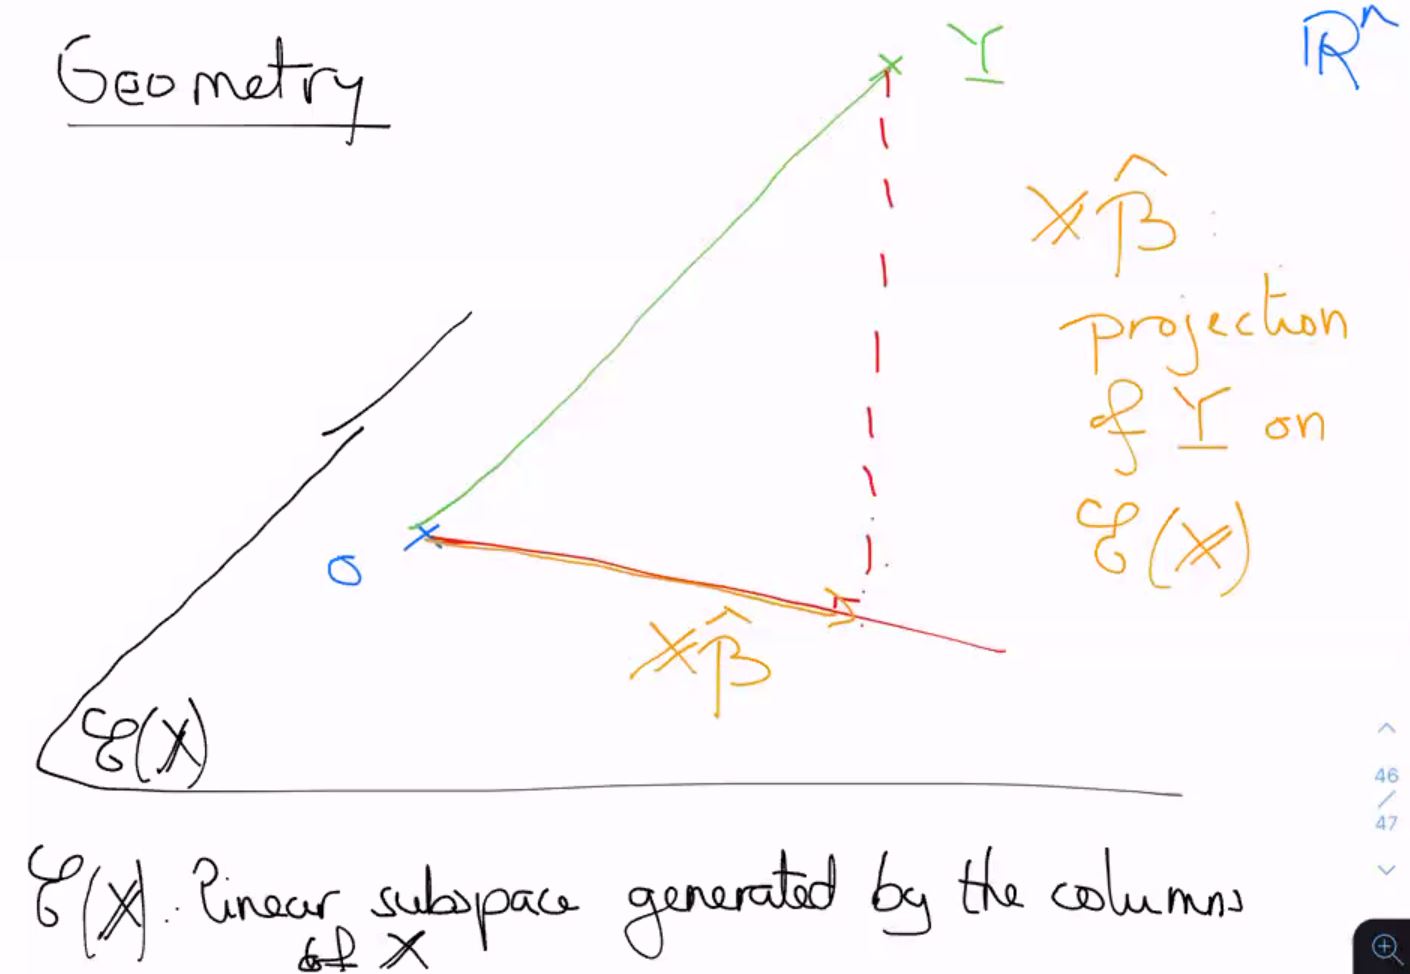 Geometry
Y
ℝⁿ
𝕏β̂ :
projection
of Y on
𝓔(𝕏)
O
𝕏β̂
𝓔(𝕏)
46
/
47
𝓔(𝕏): linear subspace generated by the columns
of 𝕏